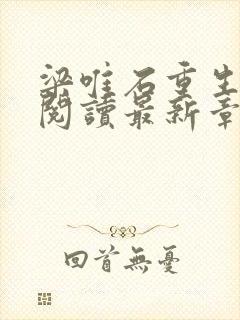 梁唯石重生
閱讀最新章
回首無憂